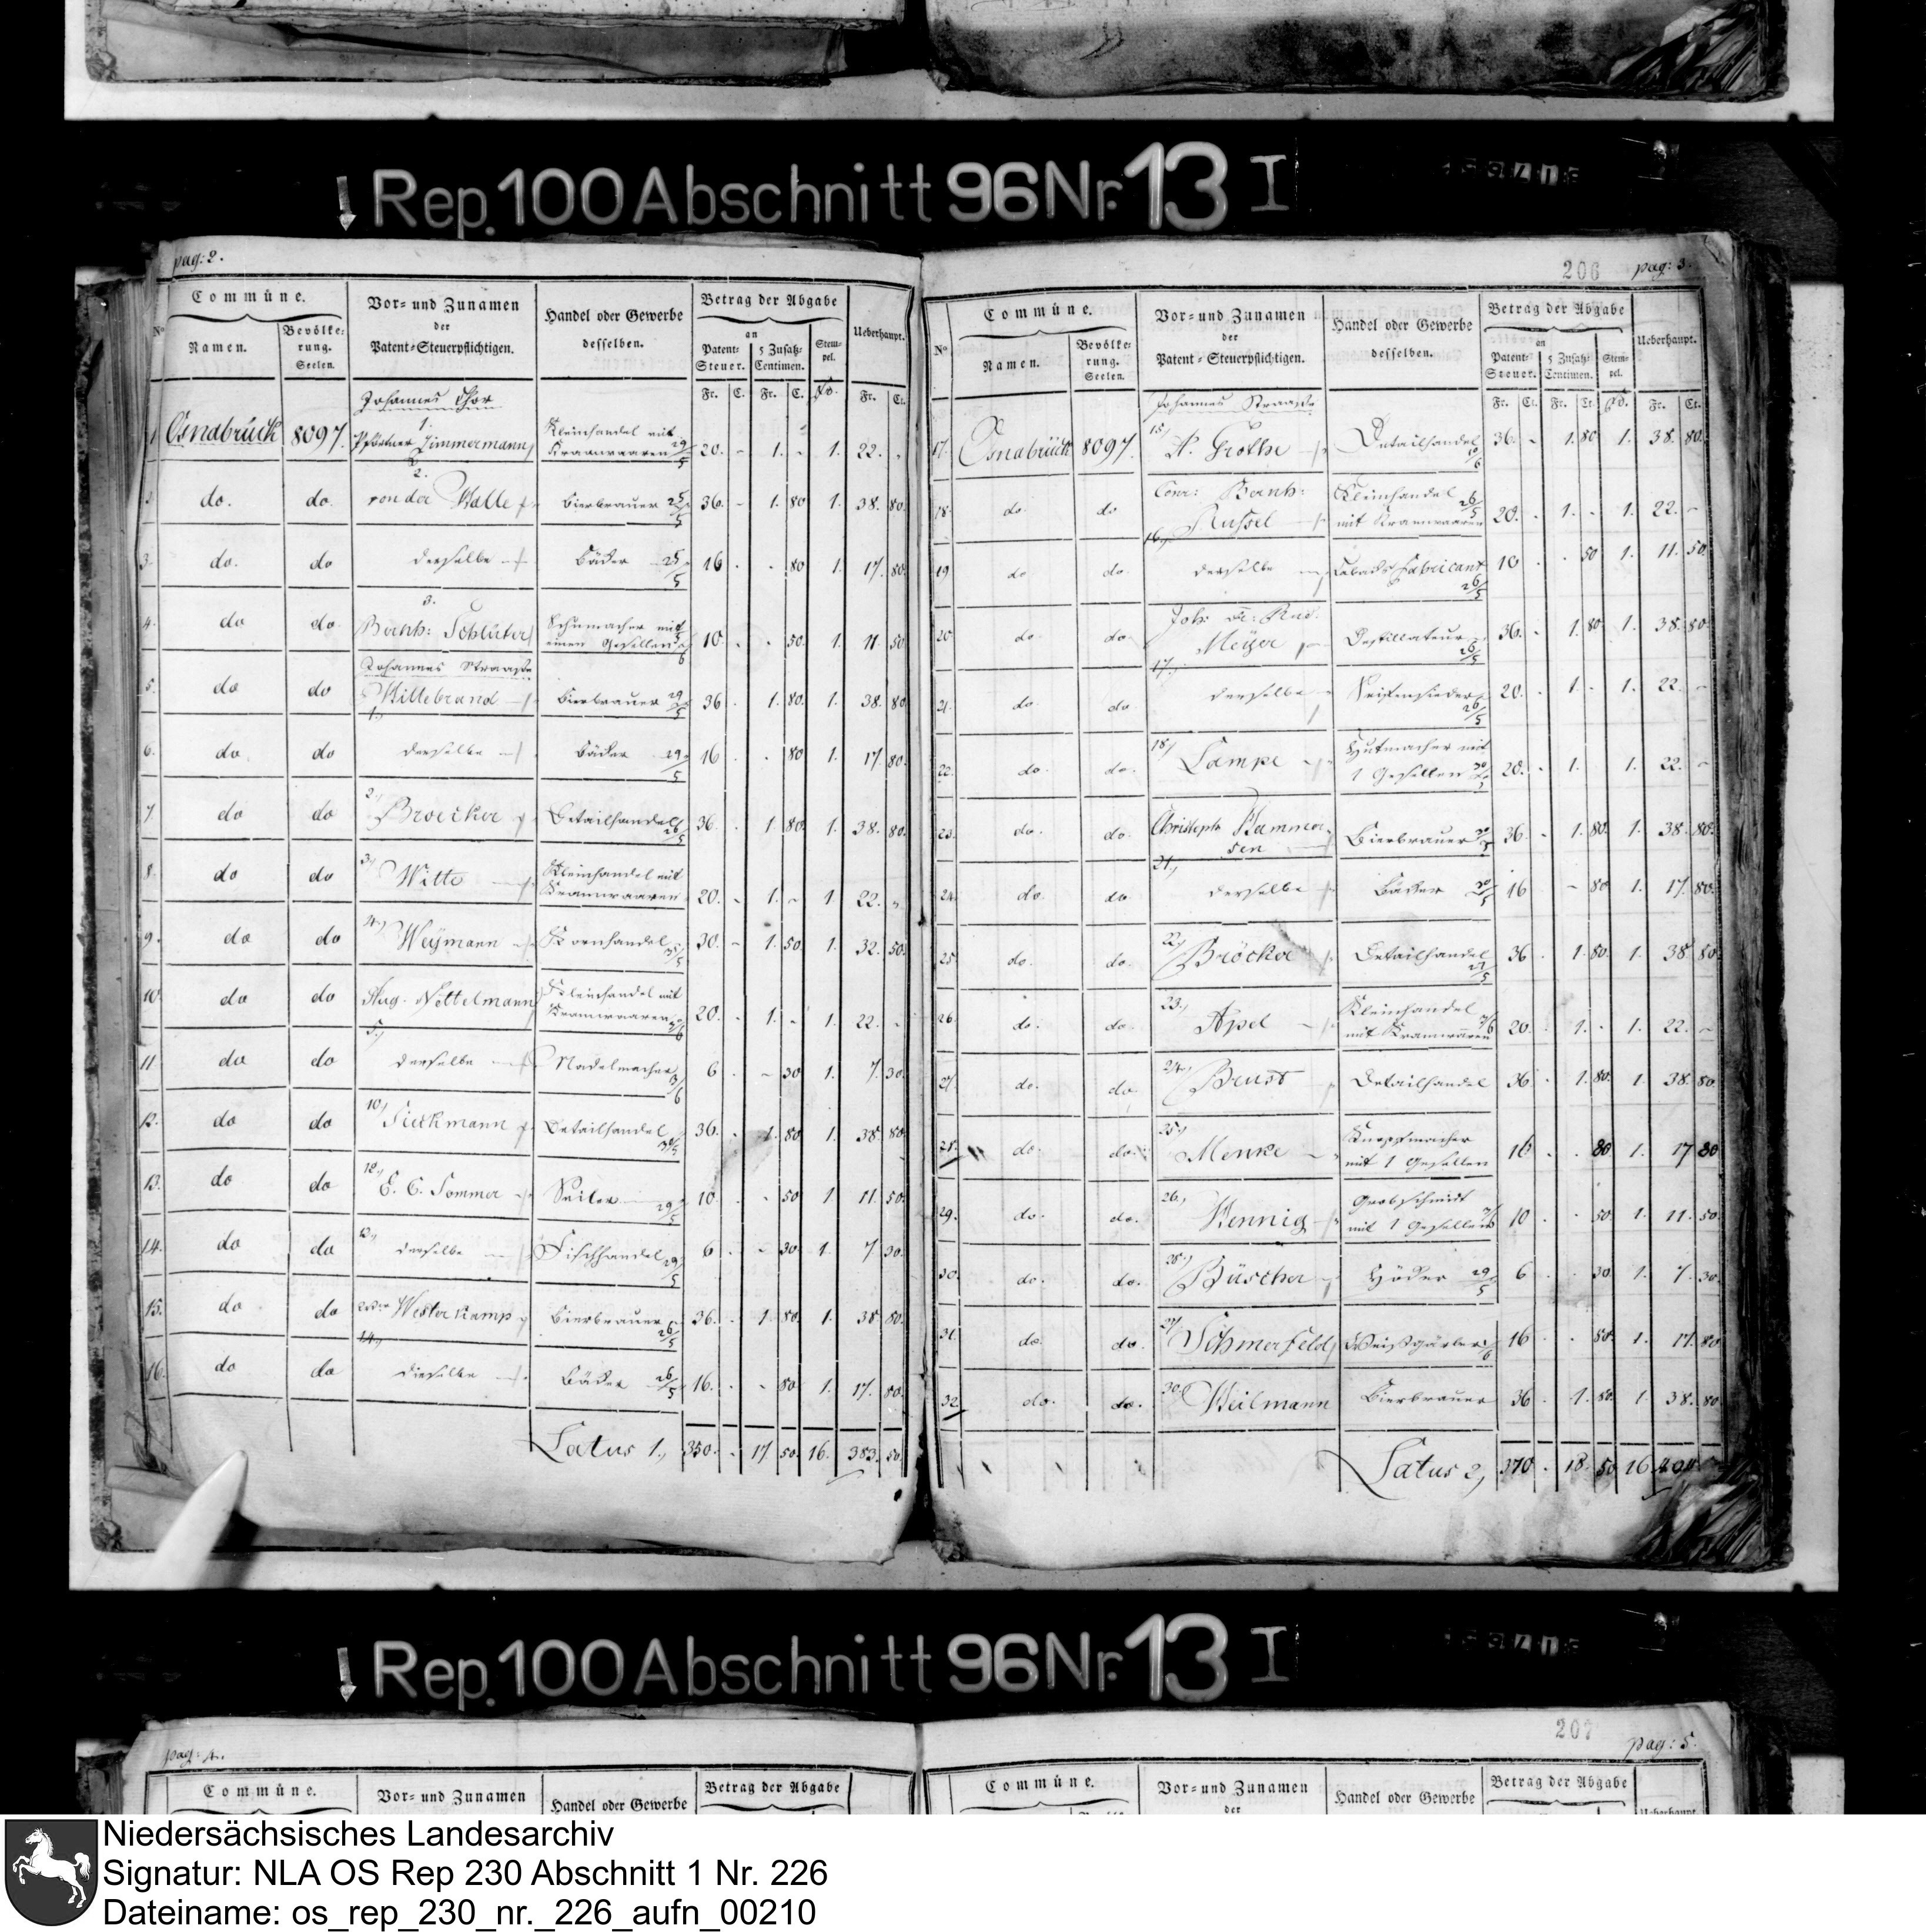 Rep. 100 Abschnitt 96 Nr. 13 I
pag: 2.
Commüne.
Vor- und Zunamen
der
Patent-Steuerpflichtigen.
Handel oder Gewerbe
desselben.
Betrag der Abgabe
Ueberhaupt.
No
Namen.
Bevölke-
rung.
Seelen.
an
Patent-
Steuer.
5 Zusatz-
Centimen.
Stem-
pel.
Fr. C. Fr. C. Fr. Ct.
Johannes Thor
1.
1 Osnabrück 8097. Zimmermann Kleinhandel mit
Kramwaaren 29/5 20. - 1. - 1. 22. -
2.
2. do. do. von der Halle Bierbrauer 25/5 36. - 1. 80 1. 38. 80.
3. do. do derselbe Bäcker 25/5 16 . . 80 1. 17. 80.
3.
4. do do. Bernh: Schlüter Schumacher mit
einen Gesellen 10. . . 50. 1. 11. 50
Johannes Straasse
5. do do Hillebrand Bierbrauer 29/5 36 . 1. 80. 1. 38. 80
1.,
6. do do derselbe Bäcker 29/5 16 . . 80 1. 17. 80.
7. do do 2., Broecker Detailhandel 26/5 36. . 1. 80. 1. 38. 80.
8. do do 3., Witte Kleinhandel mit
Kramwaaren 20. - 1. - 1. 22. -
9. do do 4., Weÿmann Kornhandel 30. - 1. 50 1. 32. 50.
10. do do Aug. Nettelmann Kleinhandel mit
Kramwaaren 20. . 1. - 1. 22. -
5.,
11 do do derselbe Nadelmacher 6 . - 30 1. 7. 30.
12. do do 10., Sieckmann Detailhandel 36. . 1. 80 1. 38. 80
13. do do 12., E. C. Sommer Seiler 29/5 10 . . 50 1 11. 50.
14. do do derselbe Fischhandel 29/5 6 . - 30 1. 7. 30.
15. do do Westerkamp Bierbrauer 26/5 36. . 1. 80. 1. 38 80.
14.,
16. do do dieselbe Bäcker 26/5 16. . - 80 1. 17. 80.
Latus 1., 350. . 17 50. 16. 383. 50.
206
pag: 3.
Commüne.
Vor- und Zunamen
der
Patent-Steuerpflichtigen.
Handel oder Gewerbe
desselben.
Betrag der Abgabe
Ueberhaupt.
No
Namen.
Bevölke-
rung.
Seelen.
an
Patent-
Steuer.
5 Zusatz-
Centimen.
Stem-
pel.
Fr. Ct. Fr. Ct. Fr. Ct.
Johannes Straasse
17. Osnabrück 8097. 15., Grothe Detailhandel 36. - 1. 80 1. 38. 80.
18. do. do Conr: Bernh:
Russel Kleinhandel 26/5
mit Kramwaaren 20. . 1. - 1. 22. -
16.,
19 do do. derselbe Tabacks Fabricant 26/5 10 . . 50 1. 11. 50.
20. do. do. Joh:
Meÿer Destillateur 26/5 36. . 1. 80 1. 38. 80.
17.,
21. do. do derselbe Seifensieder 26/5 20. . 1. - 1. 22. -
22. do. do. 18., Lampe Hutmacher mit
1 Gesellen 20. . 1. 1. 22. -
23. do. do. Christoph Hammer-
sen Bierbrauer 36. - 1. 80. 1. 38. 80.
21.,
24. do. do. derselbe Bäcker 16 - 80 1. 17. 80.
25. do. do. 22., Bröcker Detailhandel 27/5 36 . 1. 80. 1. 38 80
26. do. do. 23., Apel Kleinhandel
mit Kramwaaren 20. . 1. . 1. 22. -
27. do. do. 24., Brust Detailhandel 36 . 1. 80. 1. 38. 80.
28. do. do. 25., Menke Knopfmacher
mit 1 Gesellen 16 . . 80 1. 17 80
29. do. do. 26., Hennig Grobschmidt
mit 1 Gesellen 10 . . 50. 1. 11. 50.
30. do. do. 28., Büscher Höker 29/5 6 . . 30. 1. 7. 30.
31. do. do. Schmerfeld Weißgärber 16 . . 80. 1. 17. 80
32. do. do. 30., Heilmann Bierbrauer 36 . 1. 80. 1 38. 80
Latus 2., 370 . 18. 50 16. 404.
Rep. 100 Abschnitt 96 Nr. 13 I
pag: 4.
Commüne.
Vor- und Zunamen
Handel oder Gewerbe
Betrag der Abgabe
207
pag: 5.
Commüne.
Vor- und Zunamen
der
Handel oder Gewerbe
Betrag der Abgabe
Ueberhaupt.
Niedersächsisches Landesarchiv
Signatur: NLA OS Rep 230 Abschnitt 1 Nr. 226
Dateiname: os_rep_230_nr._226_aufn_00210